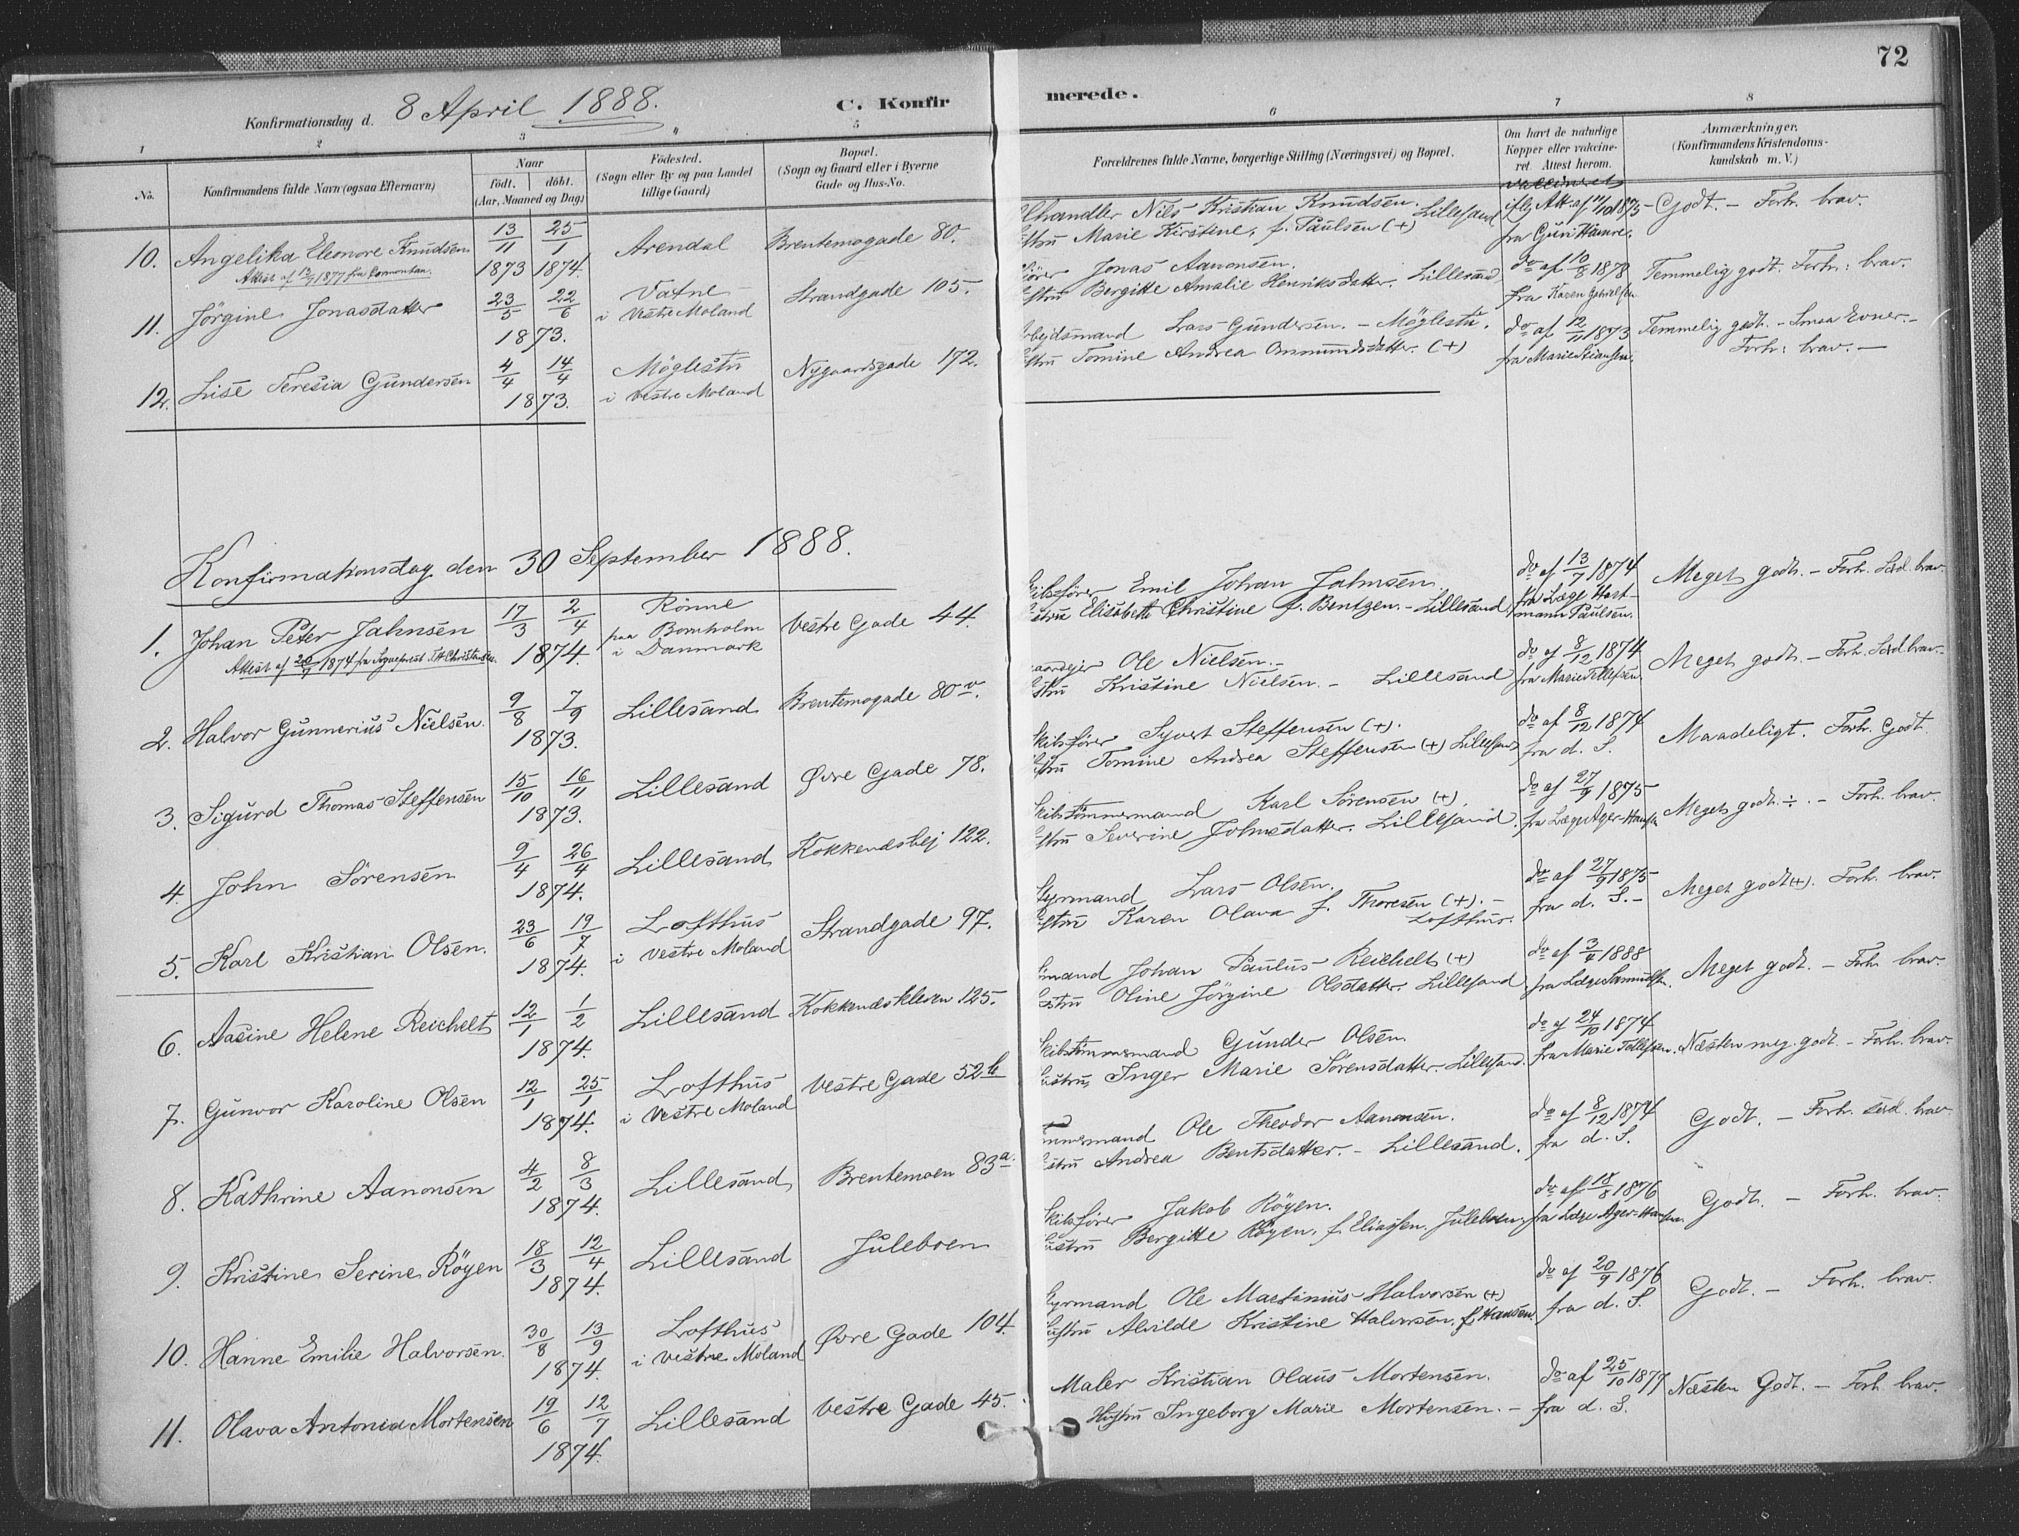 72
Konfirmationsdag d. 8 April 1888. C. Konfirmerede.
1 2 3 4 5 6 7 8
No. Konfirmandens fulde Navn (ogsaa Efternavn) Naar födt. döbt. (Aar, Maaned og Dag) Födested. (Sogn eller By og paa Landet tillige Gaard) Bopæl. (Sogn og Gaard eller i Byerne Gade og Hus-No. Forældrenes fulde Navne, borgerlige Stilling (Næringsvei) og Bopæl. Om havt de naturlige Kopper eller vaccineret. Attest herom. Anmærkninger. (Konfirmandens Kristendomskundskab m. V.)
10. Angelika Eleonore Knudsen 13/11 1873 25/1 1874. Arendal Brentemogade 80. handler Nils Kristian Knudsen. Lillesand Godt. - Forh. brav.
Marie Kirstine, f. Paulsen (+) fra Guri Hamre.
11. Jörgine Jonasdatter 23/5 22/6 1873. Vatne i Vestre Moland Strandgade 105. Jonas Aanonsen. do af 10/8 1878 Temmelig godt. Forh: brav.
Bergitte Amalie Henriksdatter. Lillesand fra Karen Gabrielsen
12. Lise Teresia Gundersen 4/4 14/4 1873. Möglestu i Vestre Moland Nygaardsgade 172. Lars Gundersen. - Möglestu. do af 12/11 1873 Temmelig godt. - Smaa Evner. -
Tomine Andrea Ommundsdatter. (+) fra Marie Stiansen. Forh: brav. -
Konfirmationsdag den 30 September 1888.
1. Johan Peter Jahnsen 17/3 2/4 1874. Rönne paa Bornholm i Danmark Vestre Gade 44. Emil Johan Jahnsen. do af 13/7 1874 Meget godt. - Forh. Sæd. brav.
Elisabeth Christine f. Bentzen. - Lillesand fra Læge Hartmann Paulsen.
2. Halvor Gunnerius Nielsen. 9/8 7/9 1873. Lillesand Brentemogade 80 v. Ole Nielsen. - do af 8/12 1874 Meget godt. - Forh. Sæd. brav.
Kristine Nielsen. - Lillesand fra Marie Tellefsen
3. Sigurd Thomas Steffensen 15/10 16/11 1873. Lillesand Øvre Gade 78. Syvert Steffensen (+). do af 8/12 1874 Maadeligt. Forh. Godt.
Tomine Andrea Steffensen (+) Lillesand fra d. S.
4. John Sörensen 9/4 26/4 1874. Lillesand Kokkenesvej 122. Karl Sörensen (+). do af 27/9 1875 Meget godt. ÷. - Forh. brav.
Severine Johnsdatter. Lillesand. fra Læge Ager-Hansen
5. Karl Kristian Olsen. 23/6 19/7 1874. Lofthus i Vestre Moland Strandgade 97. Styrmand Lars Olsen. do af 27/9 1875 Meget godt (+). Forh. brav.
Karen Olava f. Thoresen (+). - Lofthus. fra d. S. -
6. Aasine Helene Reichelt 12/1 1/2 1874. Lillesand Kokkenæskleven 125. Johan Paulus Reichelt (+) do af 3/4 1888 Meget godt. - Forh. brav.
Oline Jörgine Olsdatter. Lillesand.
7. Gunvor Karoline Olsen 12/1 25/1 1874. Lofthus i Vestre Moland Vestre Gade 52 b Gunder Olsen. do af 24/10 1874 Næsten meg. godt. - Forh. brav.
Inger Marie Sörensdatter. Lillesand. fra Marie Tellefsen.
8. Kathrine Aanonsen 4/2 8/3 1874. Lillesand Brentemoen 83 a. Ole Theodor Aanonsen. do af 8/12 1874 Godt. - Forh. sæd. brav.
Andrea Bentsdatter. - Lillesand. fra d. S.
9. Kristine Serine Röyen 18/3 12/4 1874. Lillesand Juleboen Jakob Röyen. do af 18/8 1876 Godt. - Forh. brav.
Bergitte Röyen, f. Eliassen. Juleboen. fra Læge Ager-Hansen
10. Hanne Emilie Halvorsen. 30/8 13/9 1874. Lofthus i Vestre Moland Øvre Gade 104. Styrmand Ole Martinius Halvorsen (+) do af 20/9 1876 Godt. - Forh. brav.
Hustru Alvilde Kristine Halvorsen, f. Hansen. fra d. S.
11. Olava Antonia Mortensen 19/6 12/7 1874. Lillesand Vestre Gade 45. Maler Kristian Olaus Mortensen. do af 25/10 1877 Næsten Godt. - Forh. brav.
Hustru Ingeborg Marie Mortensen. - fra d. S.